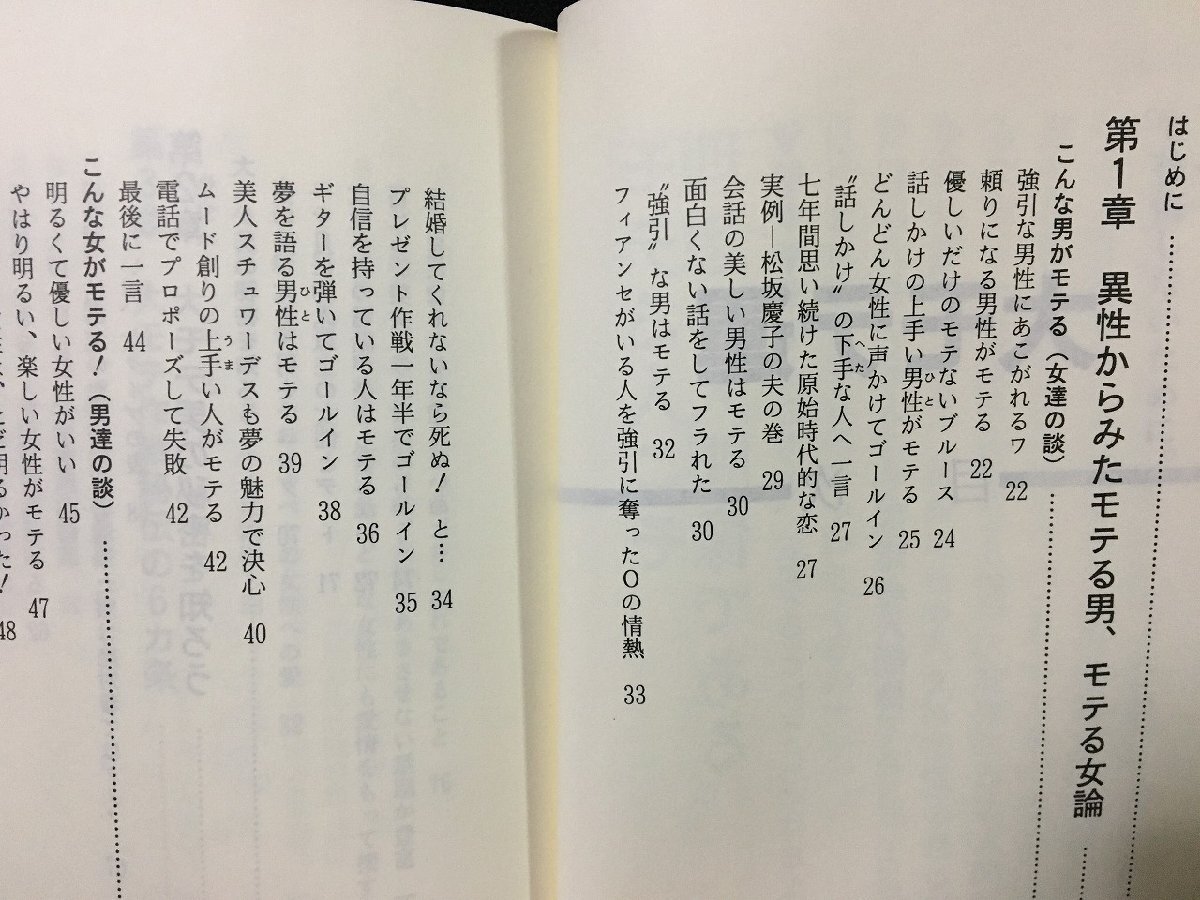 はじめに
第1章 異性からみたモテる男、モテる女論
こんな男がモテる(女達の談)
強引な男性にあこがれるワ 22
頼りになる男性がモテる 22
優しいだけのモテないブルース 24
話しかけの上手い男性がモテる 25
どんどん女性に声かけてゴールイン 26
〝話しかけ〟の下手な人へ一言 27
七年間思い続けた原始時代的な恋 27
実例―松坂慶子の夫の巻 29
会話の美しい男性はモテる 30
面白くない話をしてフラれた 30
〝強引〟な男はモテる 32
フィアンセがいる人を強引に奪ったOの情熱 33
結婚してくれないなら死ぬ!と… 34
プレゼント作戦一年半でゴールイン 35
自信を持っている人はモテる 36
ギターを弾いてゴールイン 38
夢を語る男性はモテる 39
美人スチュワーデスも夢の魅力で決心 40
ムード創りの上手い人がモテる 42
電話でプロポーズして失敗 42
最後に一言 44
こんな女がモテる!(男達の談)
明るくて優しい女性がいい 45
やはり明るい、楽しい女性がモテる 47
明るかった! 48